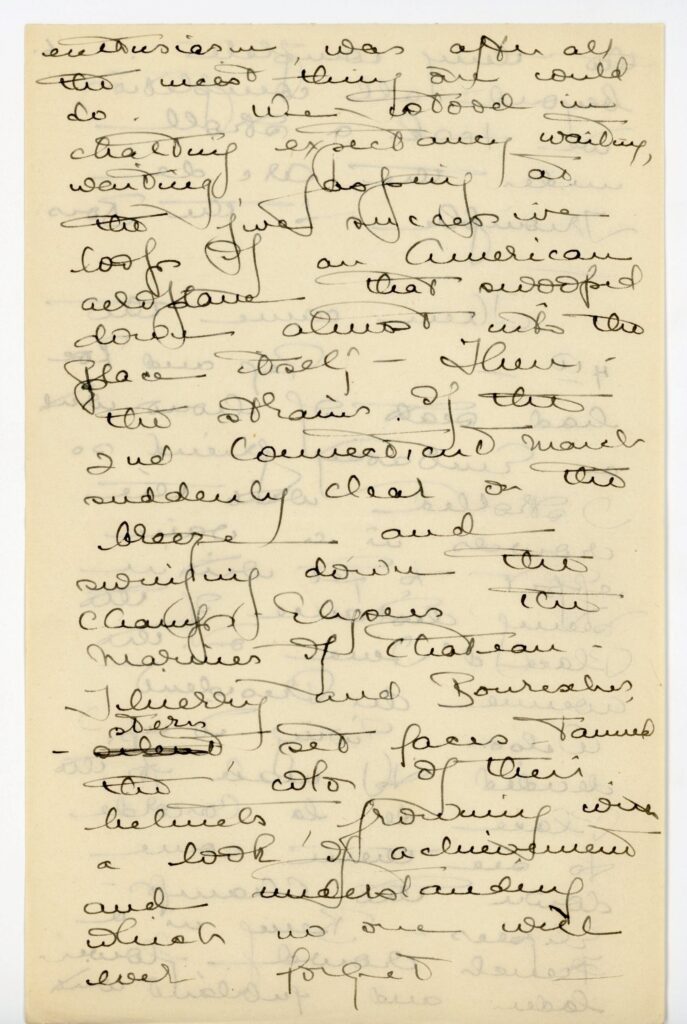 enthusiasm, was after all
the nicest thing one could
do. We stood in
chatting expectancy waiting,
waiting, gasping at
the five successive
loops of an American
aeroplane that swooped
down almost into the
Place itself — Then —
the strains of the
2nd Connecticut March
suddenly clear on the
breeze — and —
swinging down the
Champs-Elysees the
Marines of Chateau-
Thierry and Bouresches,
stern
- silent set faces tanned
the color of their
helmets, frowning with
a look of achievement
and understanding
which no one will
ever forget —